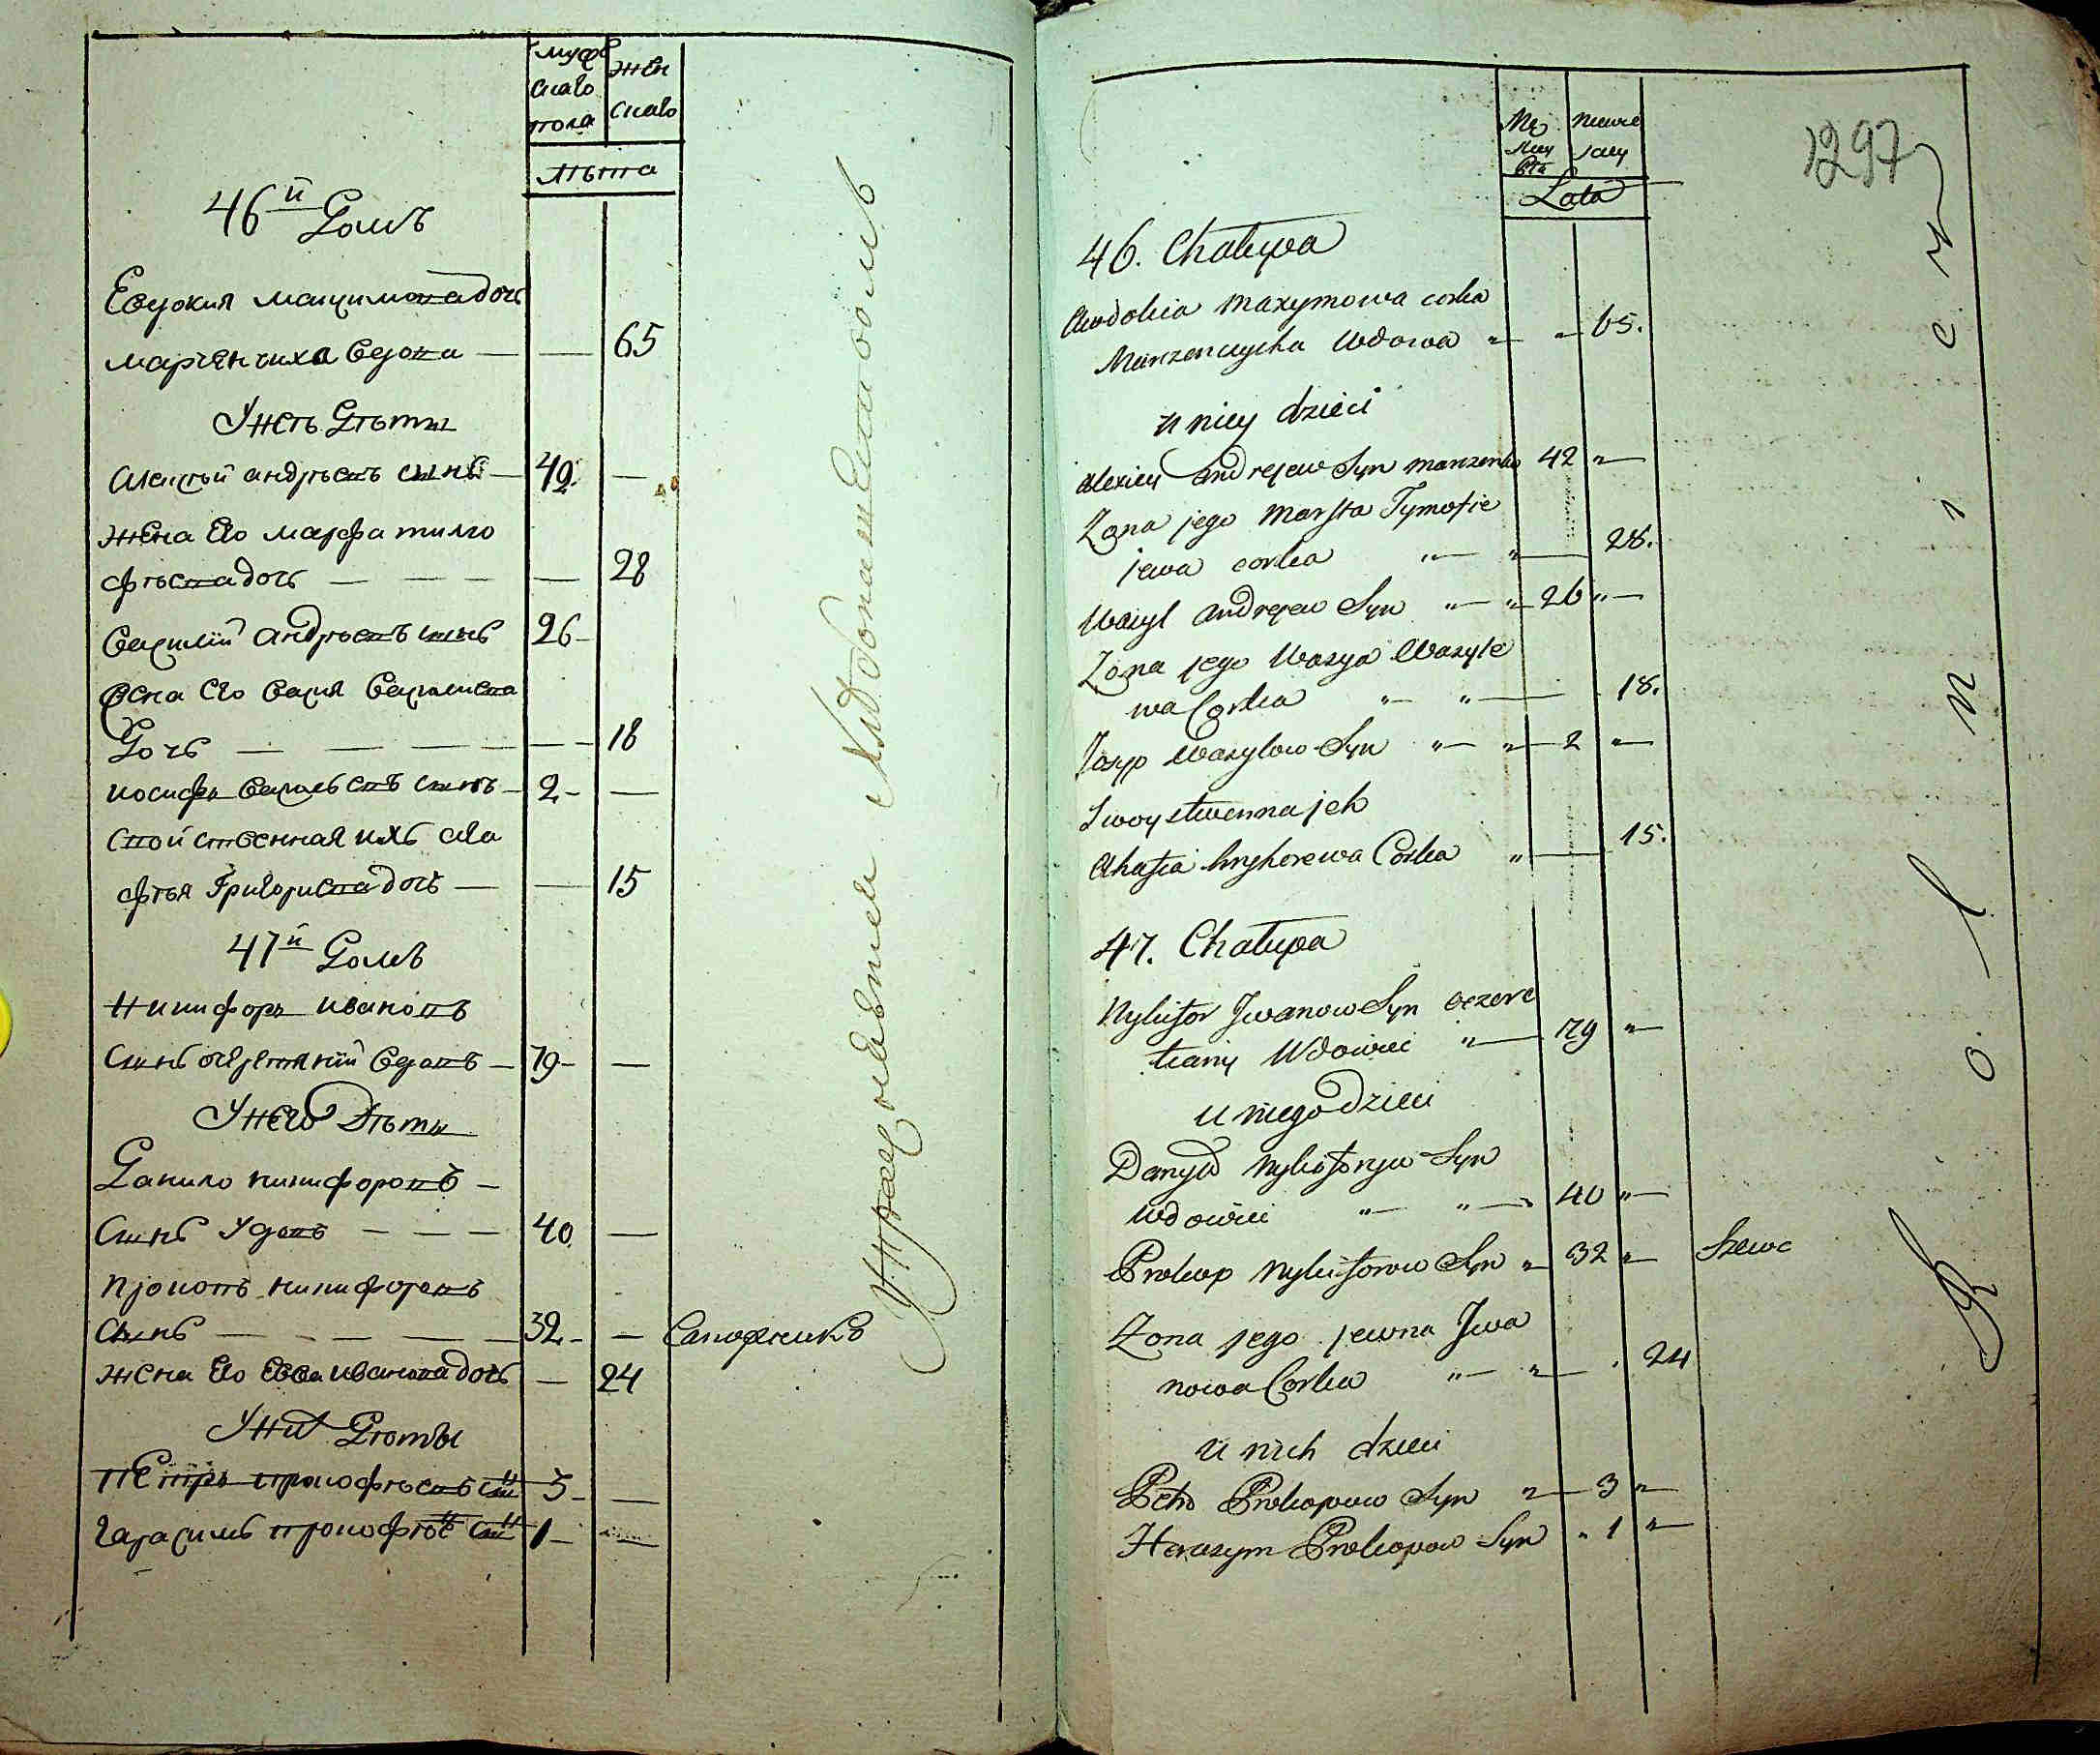 мужскаго пола
женскаго
лѣта
46й Домъ
Евдокия максимова дочь
марченчиха вдова — — 65
У неѣ Дѣти
Алексѣй андрѣевъ сынъ — 42 —
жена Его марфа тимо
фѣева дочь — — — — 28
василій андрѣевъ сынъ 26 —
жена Его васия василиева
Дочь — — — — — 18
иосифъ васильевъ сынъ — 2 — —
свойственная ихъ ага
фія Григориева дочь — — 15
47й Домъ
Никифоръ ивановъ
сынъ очеретяній вдовъ — 79 — —
У него Дѣти
Данило никифоровъ —
сынъ удовъ — — — 40 —
прокопъ никифоровъ
сынъ — — — — — 32 — — Сапожникъ
жена Его Евва иванова дочь — 24
У них Дѣты
Петръ прокофѣевъ сын 3 — —
Гарасимъ прокофѣев сын 1 — —
Mę
żczy
zna
niewie
sciy
Lata
1297
46. Chałupa
Awdokia Maxymowa corka
Marzenczycha Wdowa " — " — 65.
u niey dzieci
Alexiey Andrejew Syn Marzenko 42 " —
Zona jego Marfta Tymofie
jewa corka " — " — 28.
Wasyl Andrejew Syn " — " — 26 " —
Zona jego Wasya Wasyle
wa Corka " — " — 18.
Josyp Wasylow Syn " — " — 2 " —
Swoystwenna jch
Ahafia hryhorewa Corka " — 15.
47. Chałupa
Nykifor Jwanow Syn oczere
tiany Wdowiec " — 79 " —
u niego dzieci
Danyło Nykiforyw Syn
wdowiec " — " — 40 " —
Prokop Nykiforow Syn " 32 " — Szewc
Zona jego jewna Jwa
nowa Corka " — " — 24
u nich dzieci
Petro Prokopow Syn " — 3 " —
Herasym Prokopow Syn " 1 " —